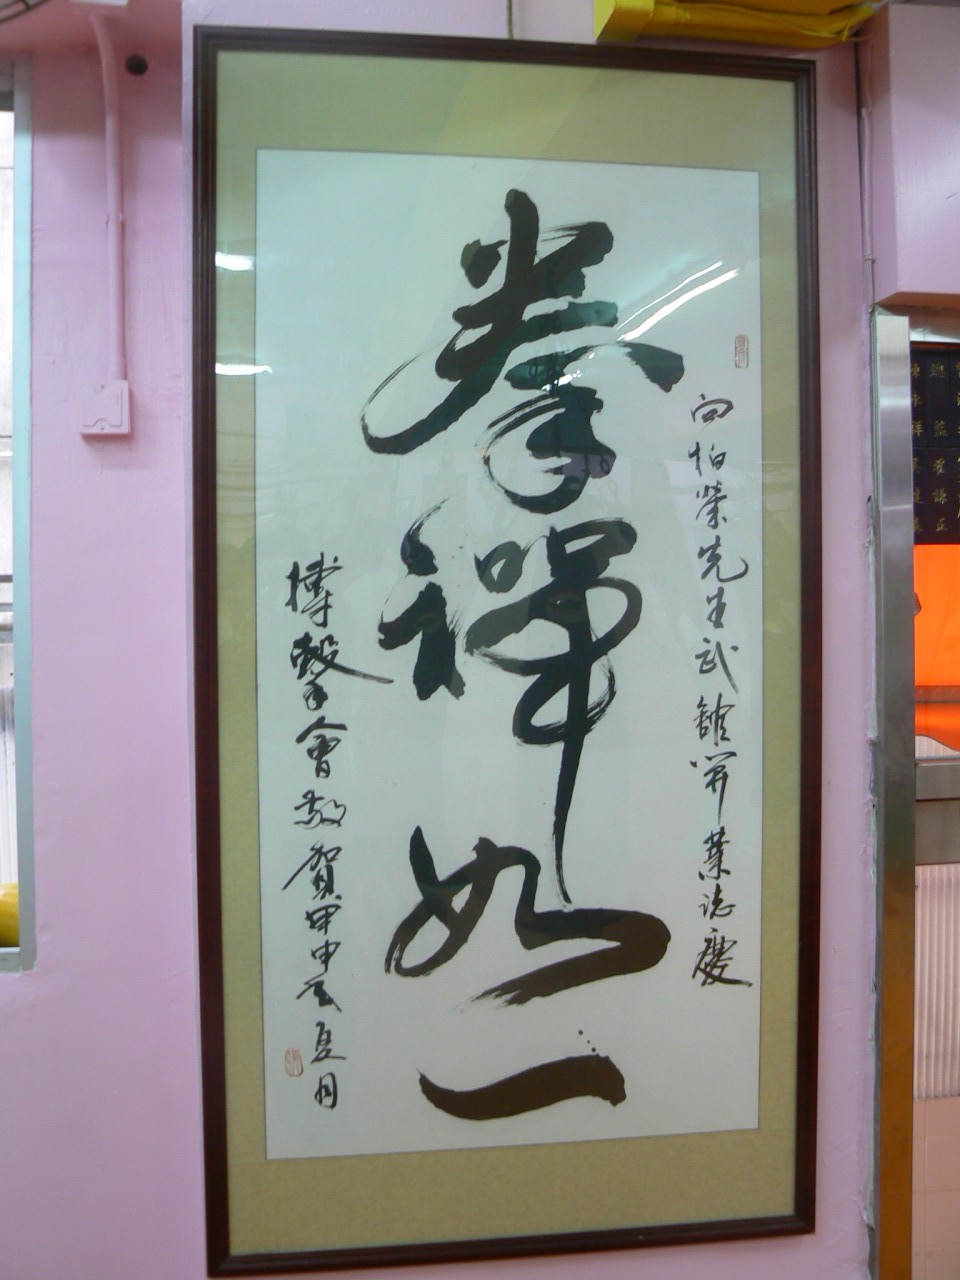 向柏榮先生武館開業誌慶
拳禪如一
搏擊會敬賀甲申之夏月
總監
陳永祥